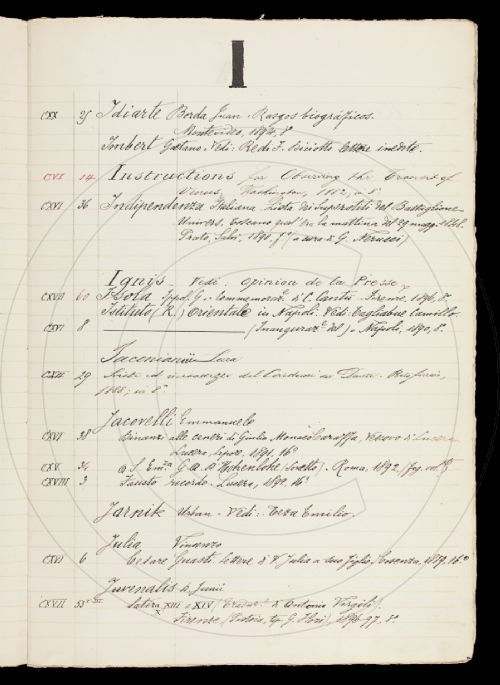 I
CXX 25 Idiarte Borda Juan. Rasgos biográficos.
Montevideo, 1894, 8°
Imbert Gaetano. Vedi: Redi F. lettere inedite.
CVI 14 Instructions for Observing the Transit of
Venus, Washington, 1882, in 8°
CXVI 36 Indipendenza Italiana. Lista dei Superstiti del Battaglione
Univers. Toscano era la mattina del 29 magg. 1848.
Prato, Salvi, 1890, f° (a cura di G. Nerucci)
Ignis Vedi: opinion de la Presse
CXVII 60 Isola Ippol. G. Commemoraz. d. C. Cantù. Firenze, 1896, 8°
Istituto (R.) Orientale in Napoli. Vedi Tagliabue Camillo
CXVI 8 (Inauguraz. del) Napoli, 1890, 8°
Luca
CXIII 29 del Carducci Dante.
1888; in 8°
Jacovelli Emmanuele
CXVI 38 alle ceneri di Giulio Monaco Caraffa, Vescovo di Lucera
Lucera, 1891, 16°
CXV 34 a S. Em.za G. A. D'Hohenlohe (Sonetto). Roma, 1892, (fog. vol.)
CXVIII 3 Fausto ricordo. Lucera, 1891, 16°
Jarnik Urban. Vedi: Teza Emilio.
Julia Vincenzo
CXVI 6 Cesare Guasti. Lettere a V. Julia a suo figlio, Cosenza, 16°
Juvenalis D. Junii
CXVII 53 Satira XIII e XIV di Antonio Virgili.
Firenze (Pistoia, tip. G. Flori), 1896-97, 8°